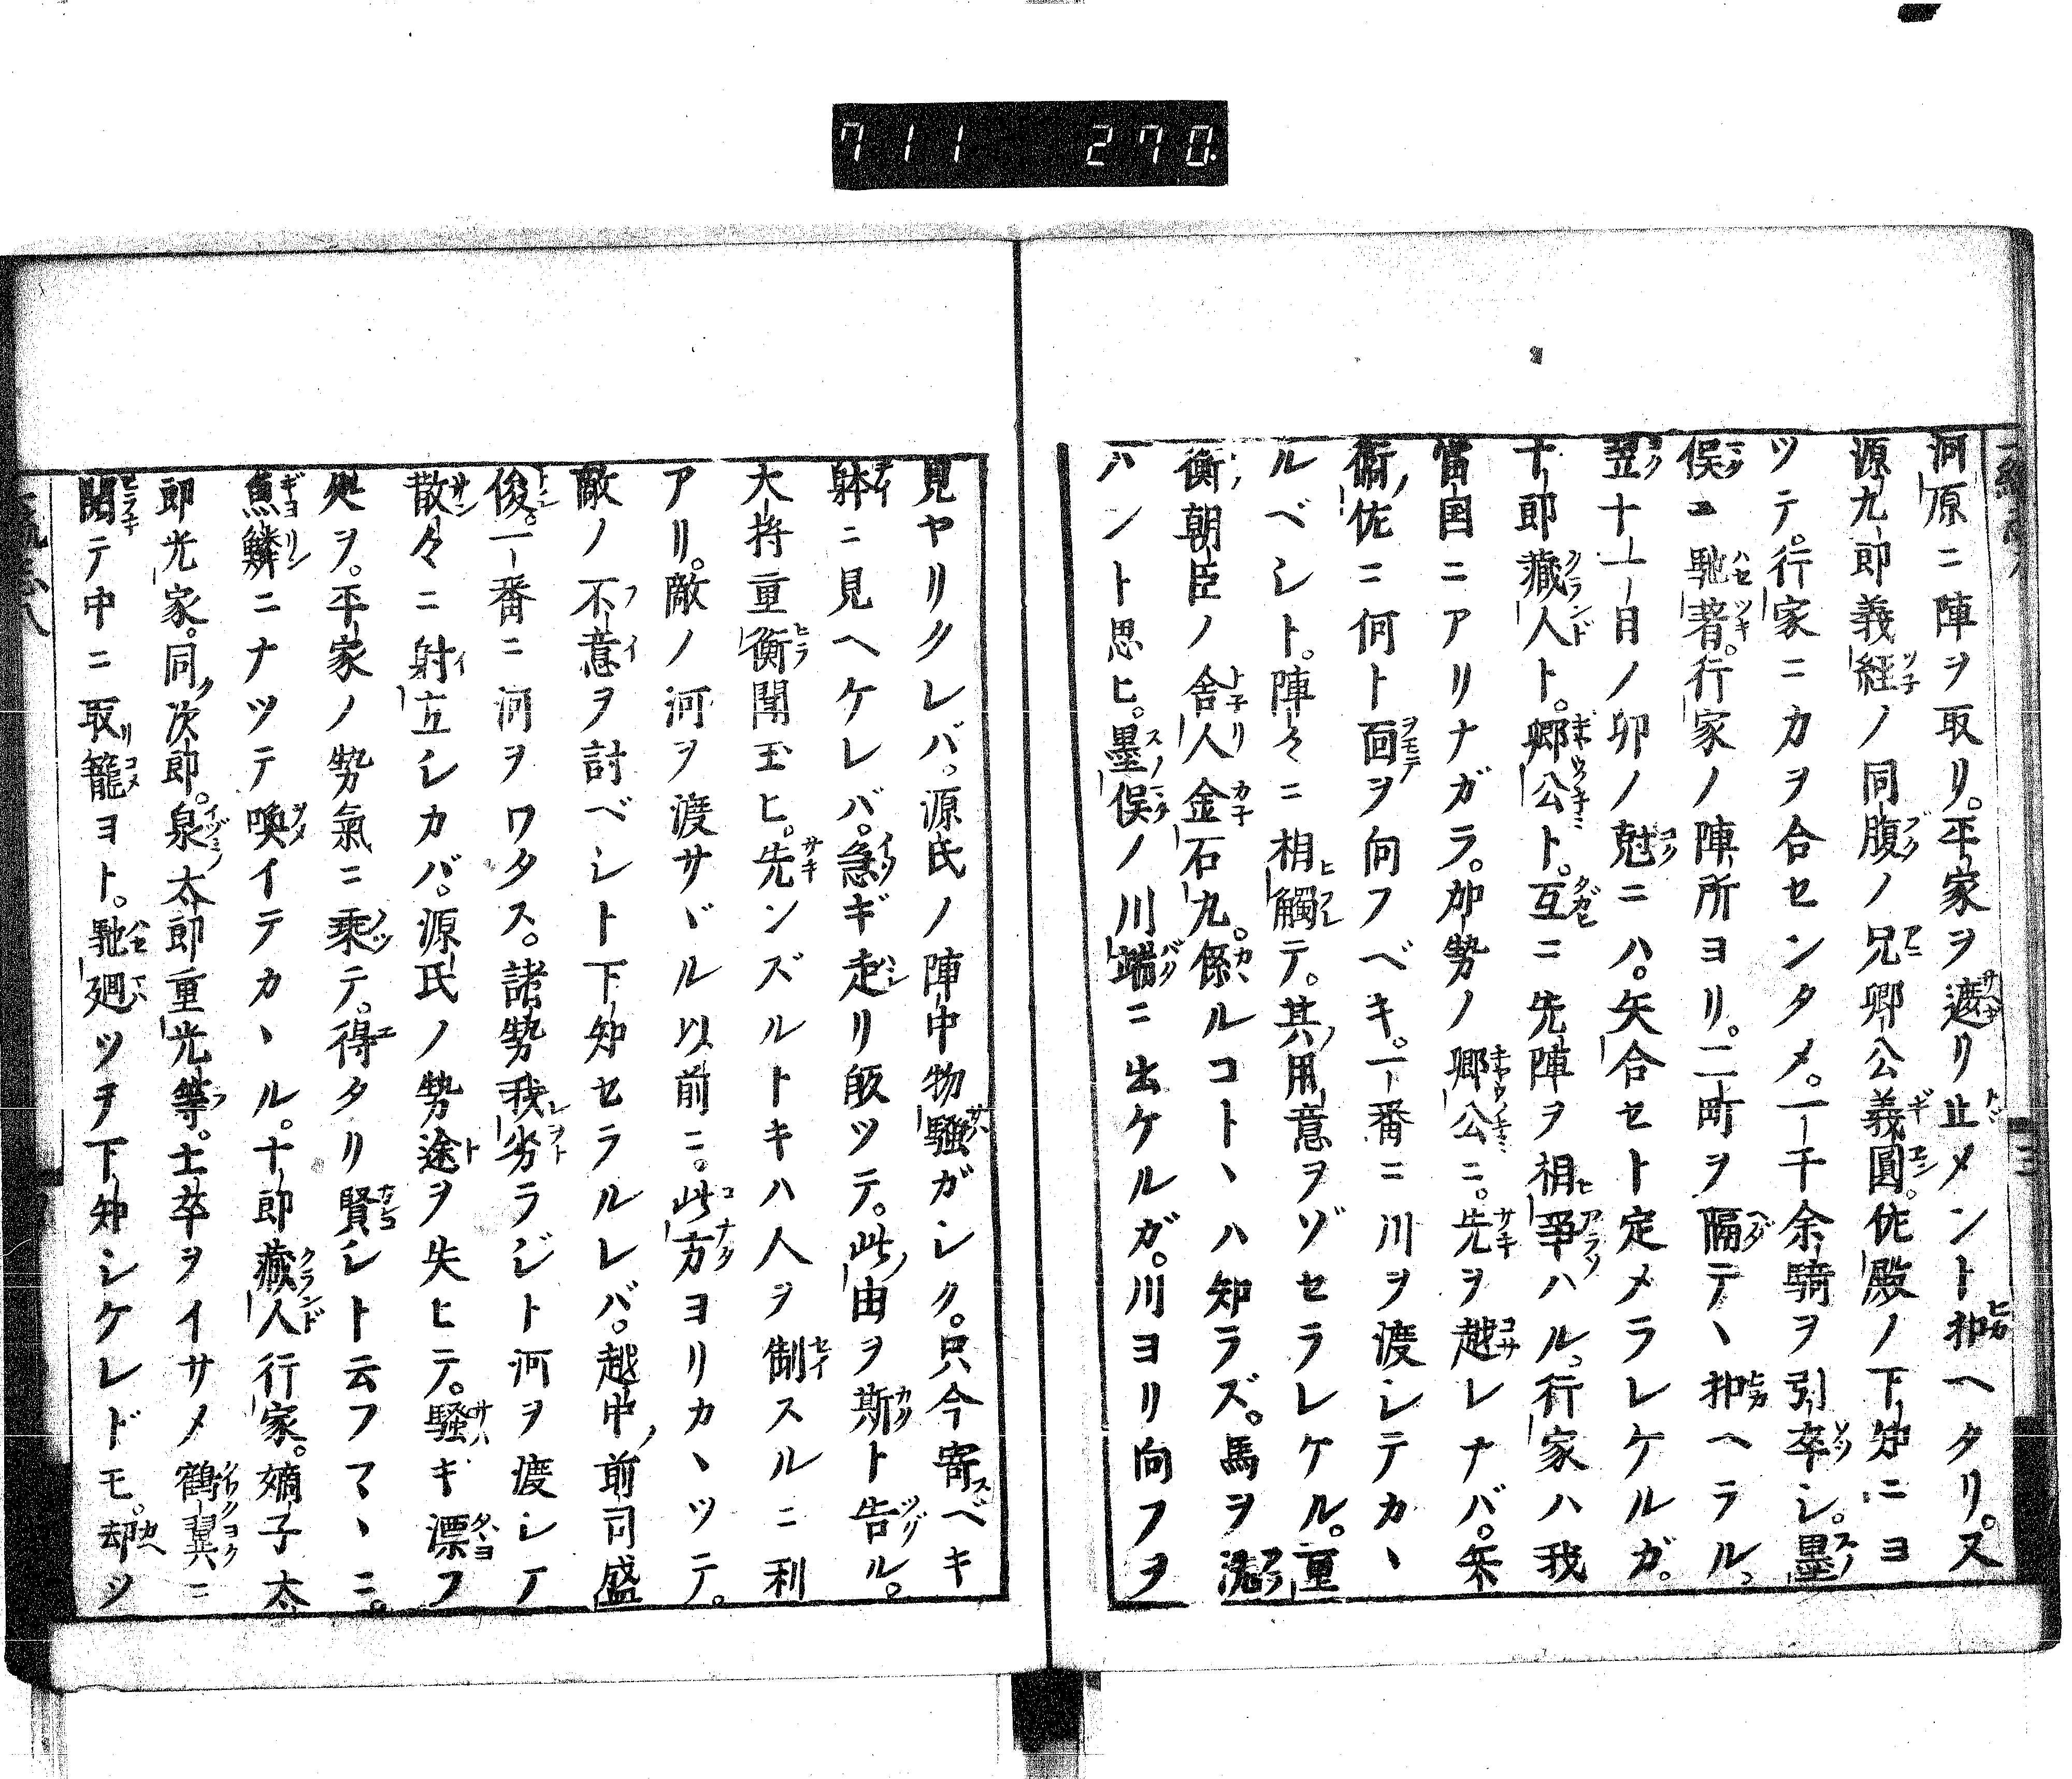 711 270.
河原ニ陣ヲ取リ。平家ヲ遮リ止メント扣ヘタリ。又
源九郎義経ノ同腹ノ兄卿公義圓。佐殿ノ下知ニヨ
ツテ。行家ニカヲ合センタメ。一千余騎ヲ引卒シ。墨
俣ニ馳著。行家ノ陣所ヨリ。二町ヲ隔テヽ扣ヘラル。
翌十一日ノ卯ノ尅ニハ。矢合セト定メラレケルガ。
十郎蔵人ト。卿公ト。互ニ先陣ヲ相争ハル。行家ハ我
當国ニアリナガラ。加勢ノ卿公ニ。先ヲ越レナバ。兵
衛佐ニ何ト面ヲ向フベキ。一番ニ川ヲ渡シテカヽ
ルベシト。陣々ニ相觸テ。其用意ヲゾセラレケル。重
衡朝臣ノ舎人金石丸。係ルコトヽハ知ラズ。馬ヲ洗
ハント思ヒ。墨俣ノ川端ニ出ケルガ。川ヨリ向フヲ
見ヤリクレバ。源氏ノ陣中物騒ガシク。只今寄ベキ
躰ニ見ヘケレバ。急ギ走リ皈ツテ。此由ヲ斯ト告ル。
大将重衡聞玉ヒ。先ンズルトキハ人ヲ制スルニ利
アリ。敵ノ河ヲ渡サヾル以前ニ。此方ヨリカヽツテ。
敵ノ不意ヲ討ベシト下知セラルレバ。越中前司盛
俊。一番ニ河ヲワタス。諸勢我劣ラジト河ヲ渡シテ
散々ニ射立シカバ。源氏ノ勢途ヲ失ヒテ。騒ギ漂フ
処ヲ。平家ノ勢氣ニ乗テ。得タリ賢シト云フマヽニ。
魚鱗ニナツテ喚イテカヽル。十郎蔵人行家。嫡子太
郎光家。同次郎。泉太郎重光等。士卒ヲイサメ鶴翼ニ
開テ中ニ取籠ヨト。馳廻ツヲ下知シケレドモ。却ツ